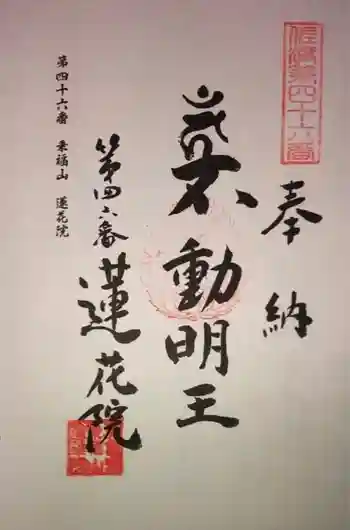 第四十六番
奉納
不動明王
第四六番
蓮花院
第四十六番 福山 蓮花院